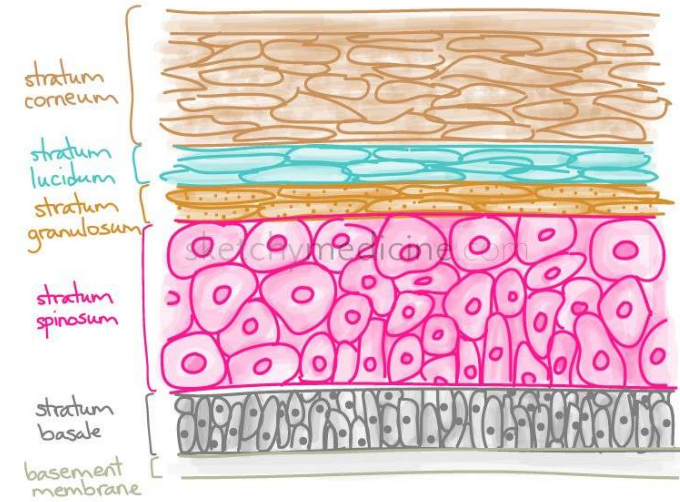 stratum
corneum
stratum
lucidum
stratum
granulosum
sketchymedicine.com
stratum
spinosum
stratum
basale
basement
membrane